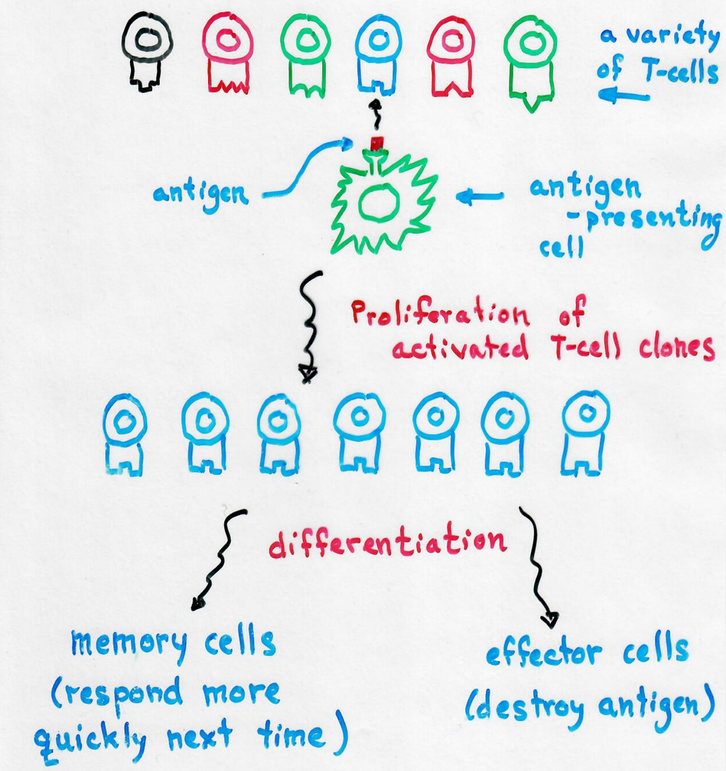 a variety
of T-cells
antigen
antigen
-presenting
cell
Proliferation of
activated T-cell clones
differentiation
memory cells
(respond more
quickly next time)
effector cells
(destroy antigen)